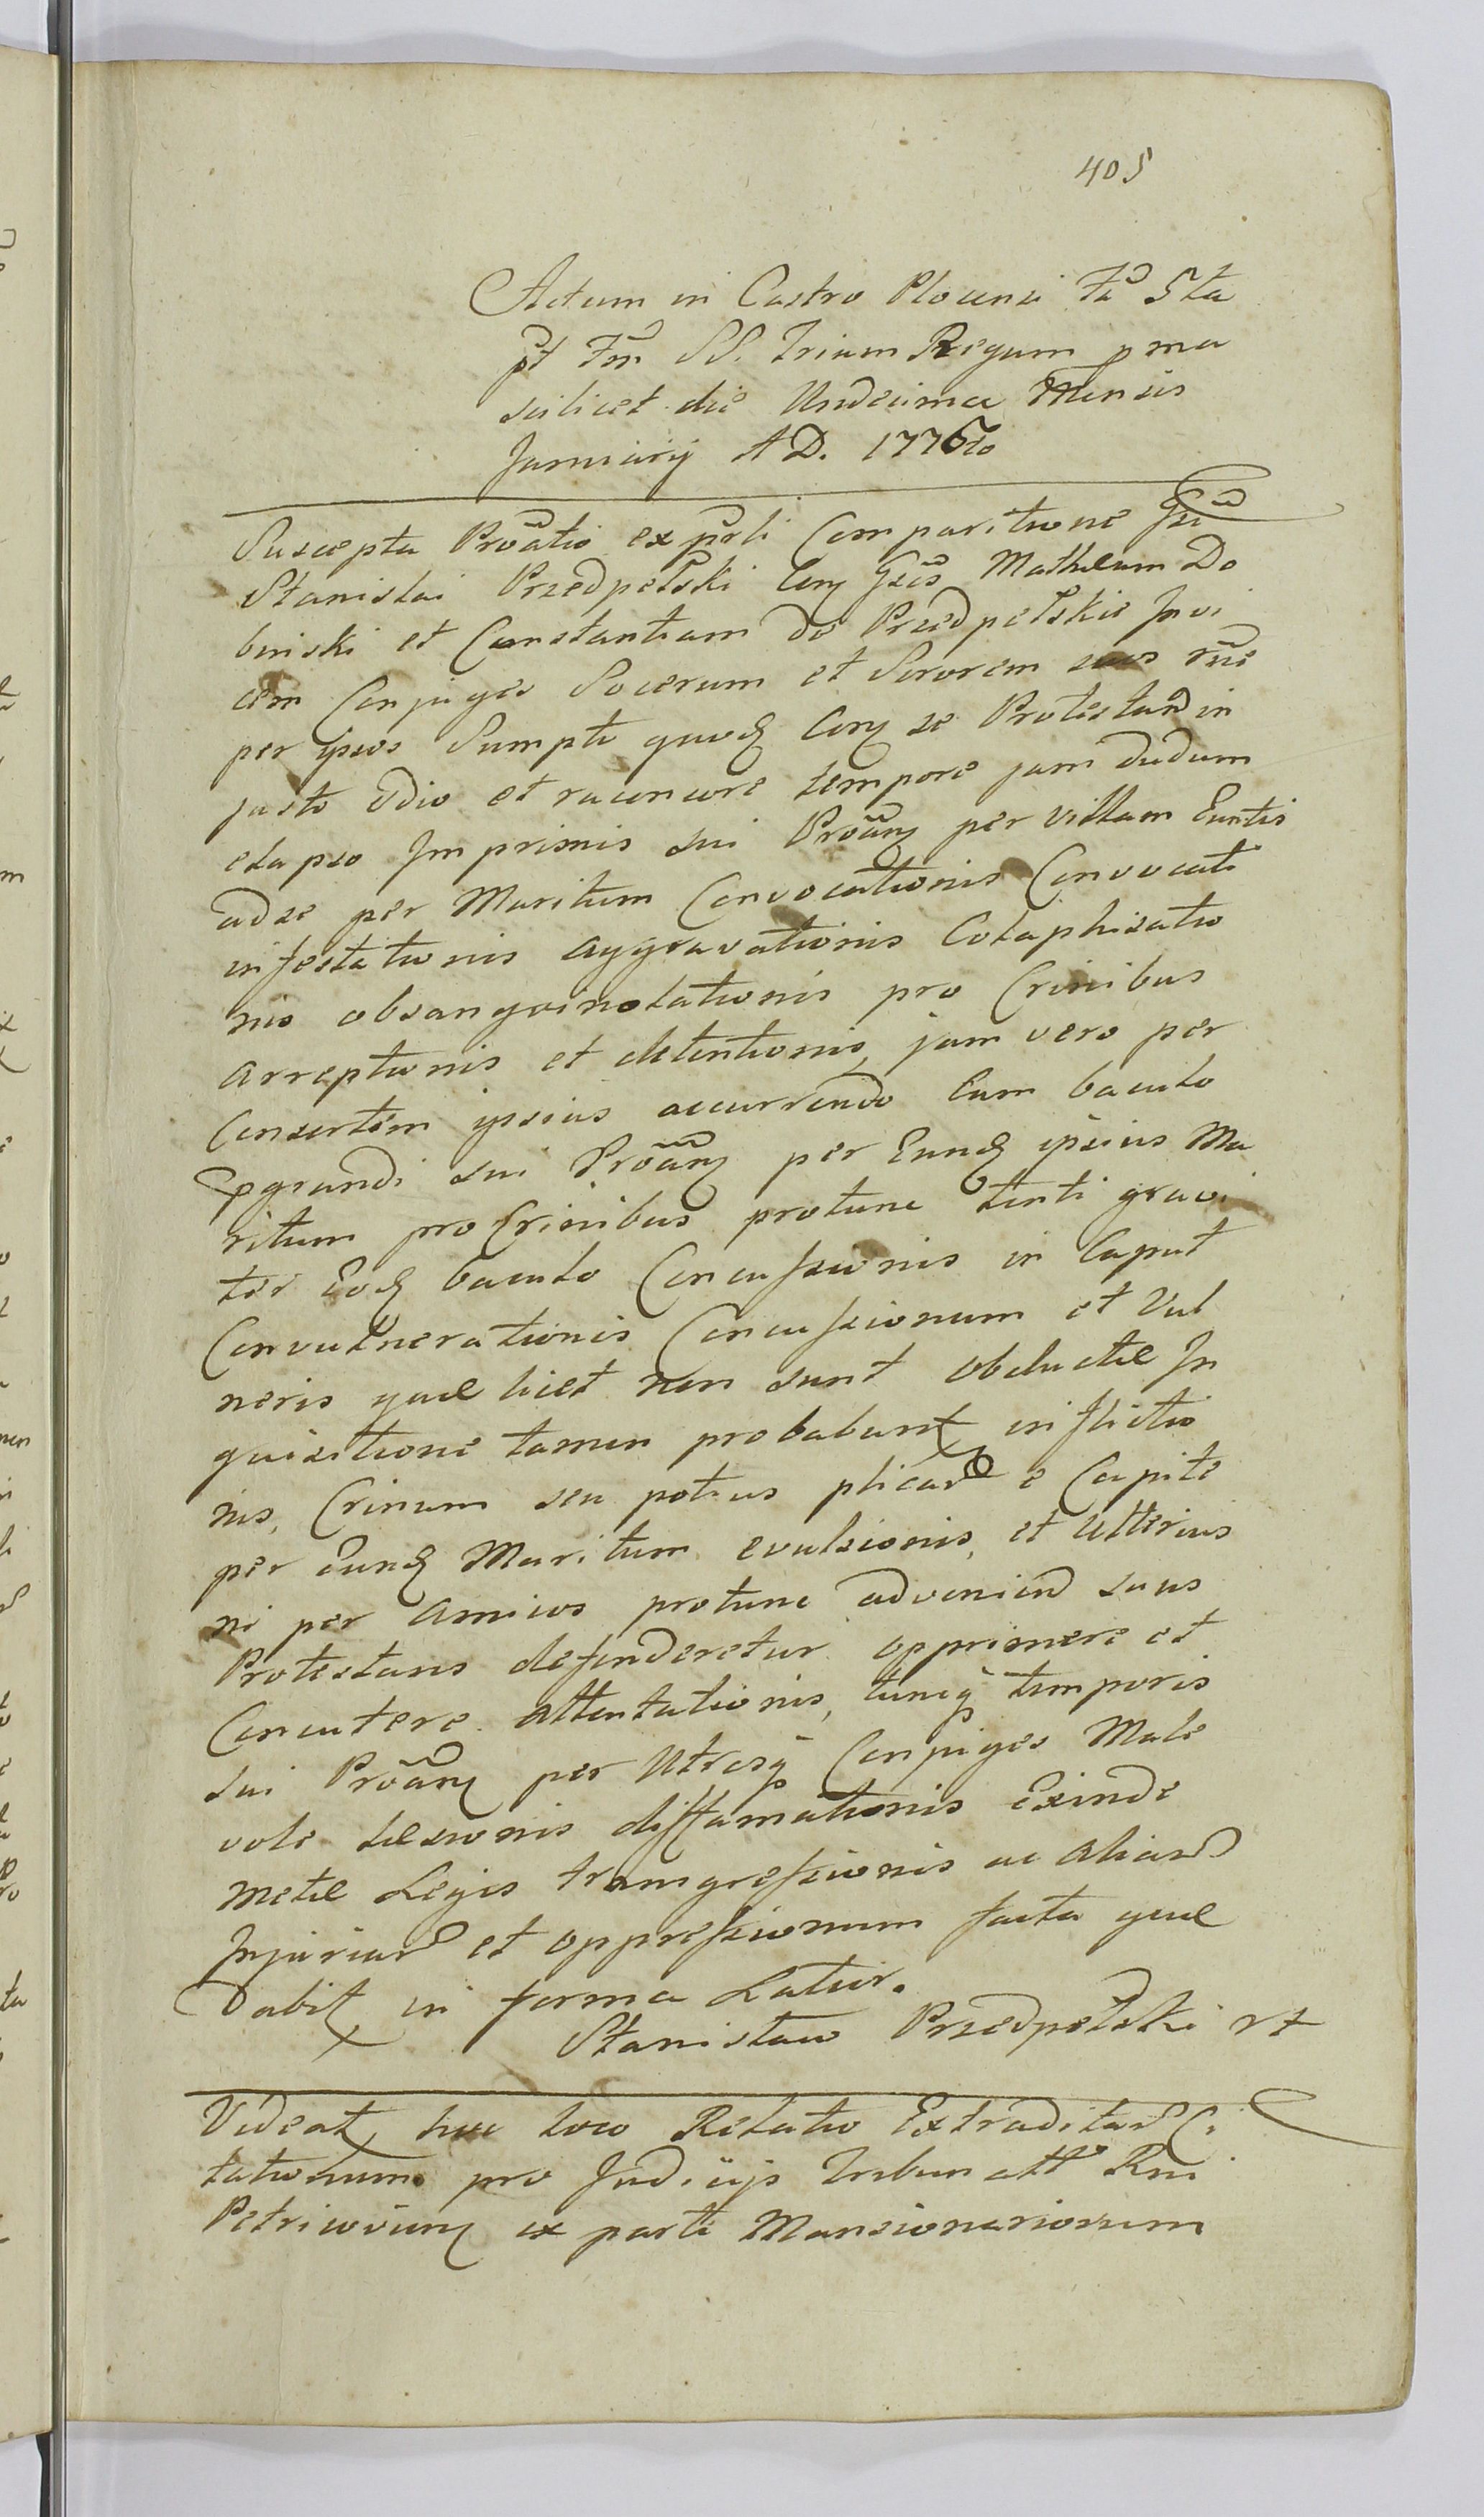 405
Actum in Castro Plocensi Fã 5ta
pt Fm SS. Trium Regum pma
scilicet die Undecima Mensis
Januarij A D. 1776to
Suscepta Prõatio ex pñrli Comparitione Gsi
Stanislai Przedpełski Con͂ Gsos Matheum Do
binski et Constantiam de Przedpełskie Invi
cem Conjuges Socerum et Sororem suos rñe
per ipsos Sumpti quod Con͂ se Protestand in
justo Odio et racuncore tempore jam dudum
elapso Imprimis sui Prõan͂ per villam Euntis
ad se per Maritum Convocationis Convocati
infestationis aggravationis Colaphisatio
nis obsangvinolationis pro Crinibus
arreptionis et detentionis, jam vero per
Consortem ipsius accurrendo Cum baculo
pgrandi sui Prõan͂ per Eund ipsius Ma
ritum pro Crinibus protunc tenti gravi
ter Eod baculo Concussionis in Caput
Convulnerationis Concussionum et Vul
neris quae licet non sunt obductae In
quisitione tamen probabunt inflictio
nis, Crinum seu potius plicar e Capite
per Eund Maritum evulsionis, et Ulterius
ni per amicos protunc advenien suus
Protestans defenderetur opprimere et
Concutere attentationis, tuncq temporis
sui Prõan͂ per Utrosq Conjuges Male
vole laesionis diffamationis Exinde
metae Legis transgressionis ac aliar
Injuriar et oppressionum facta quae
Dabit in forma Latior.
Stanisław Przedpełski rt
Videat huc loco Relatio Extraditar Ci
tationum pro Judicijs Tribunalt Rni
Petricovien͂ ex parte Mansionariorum